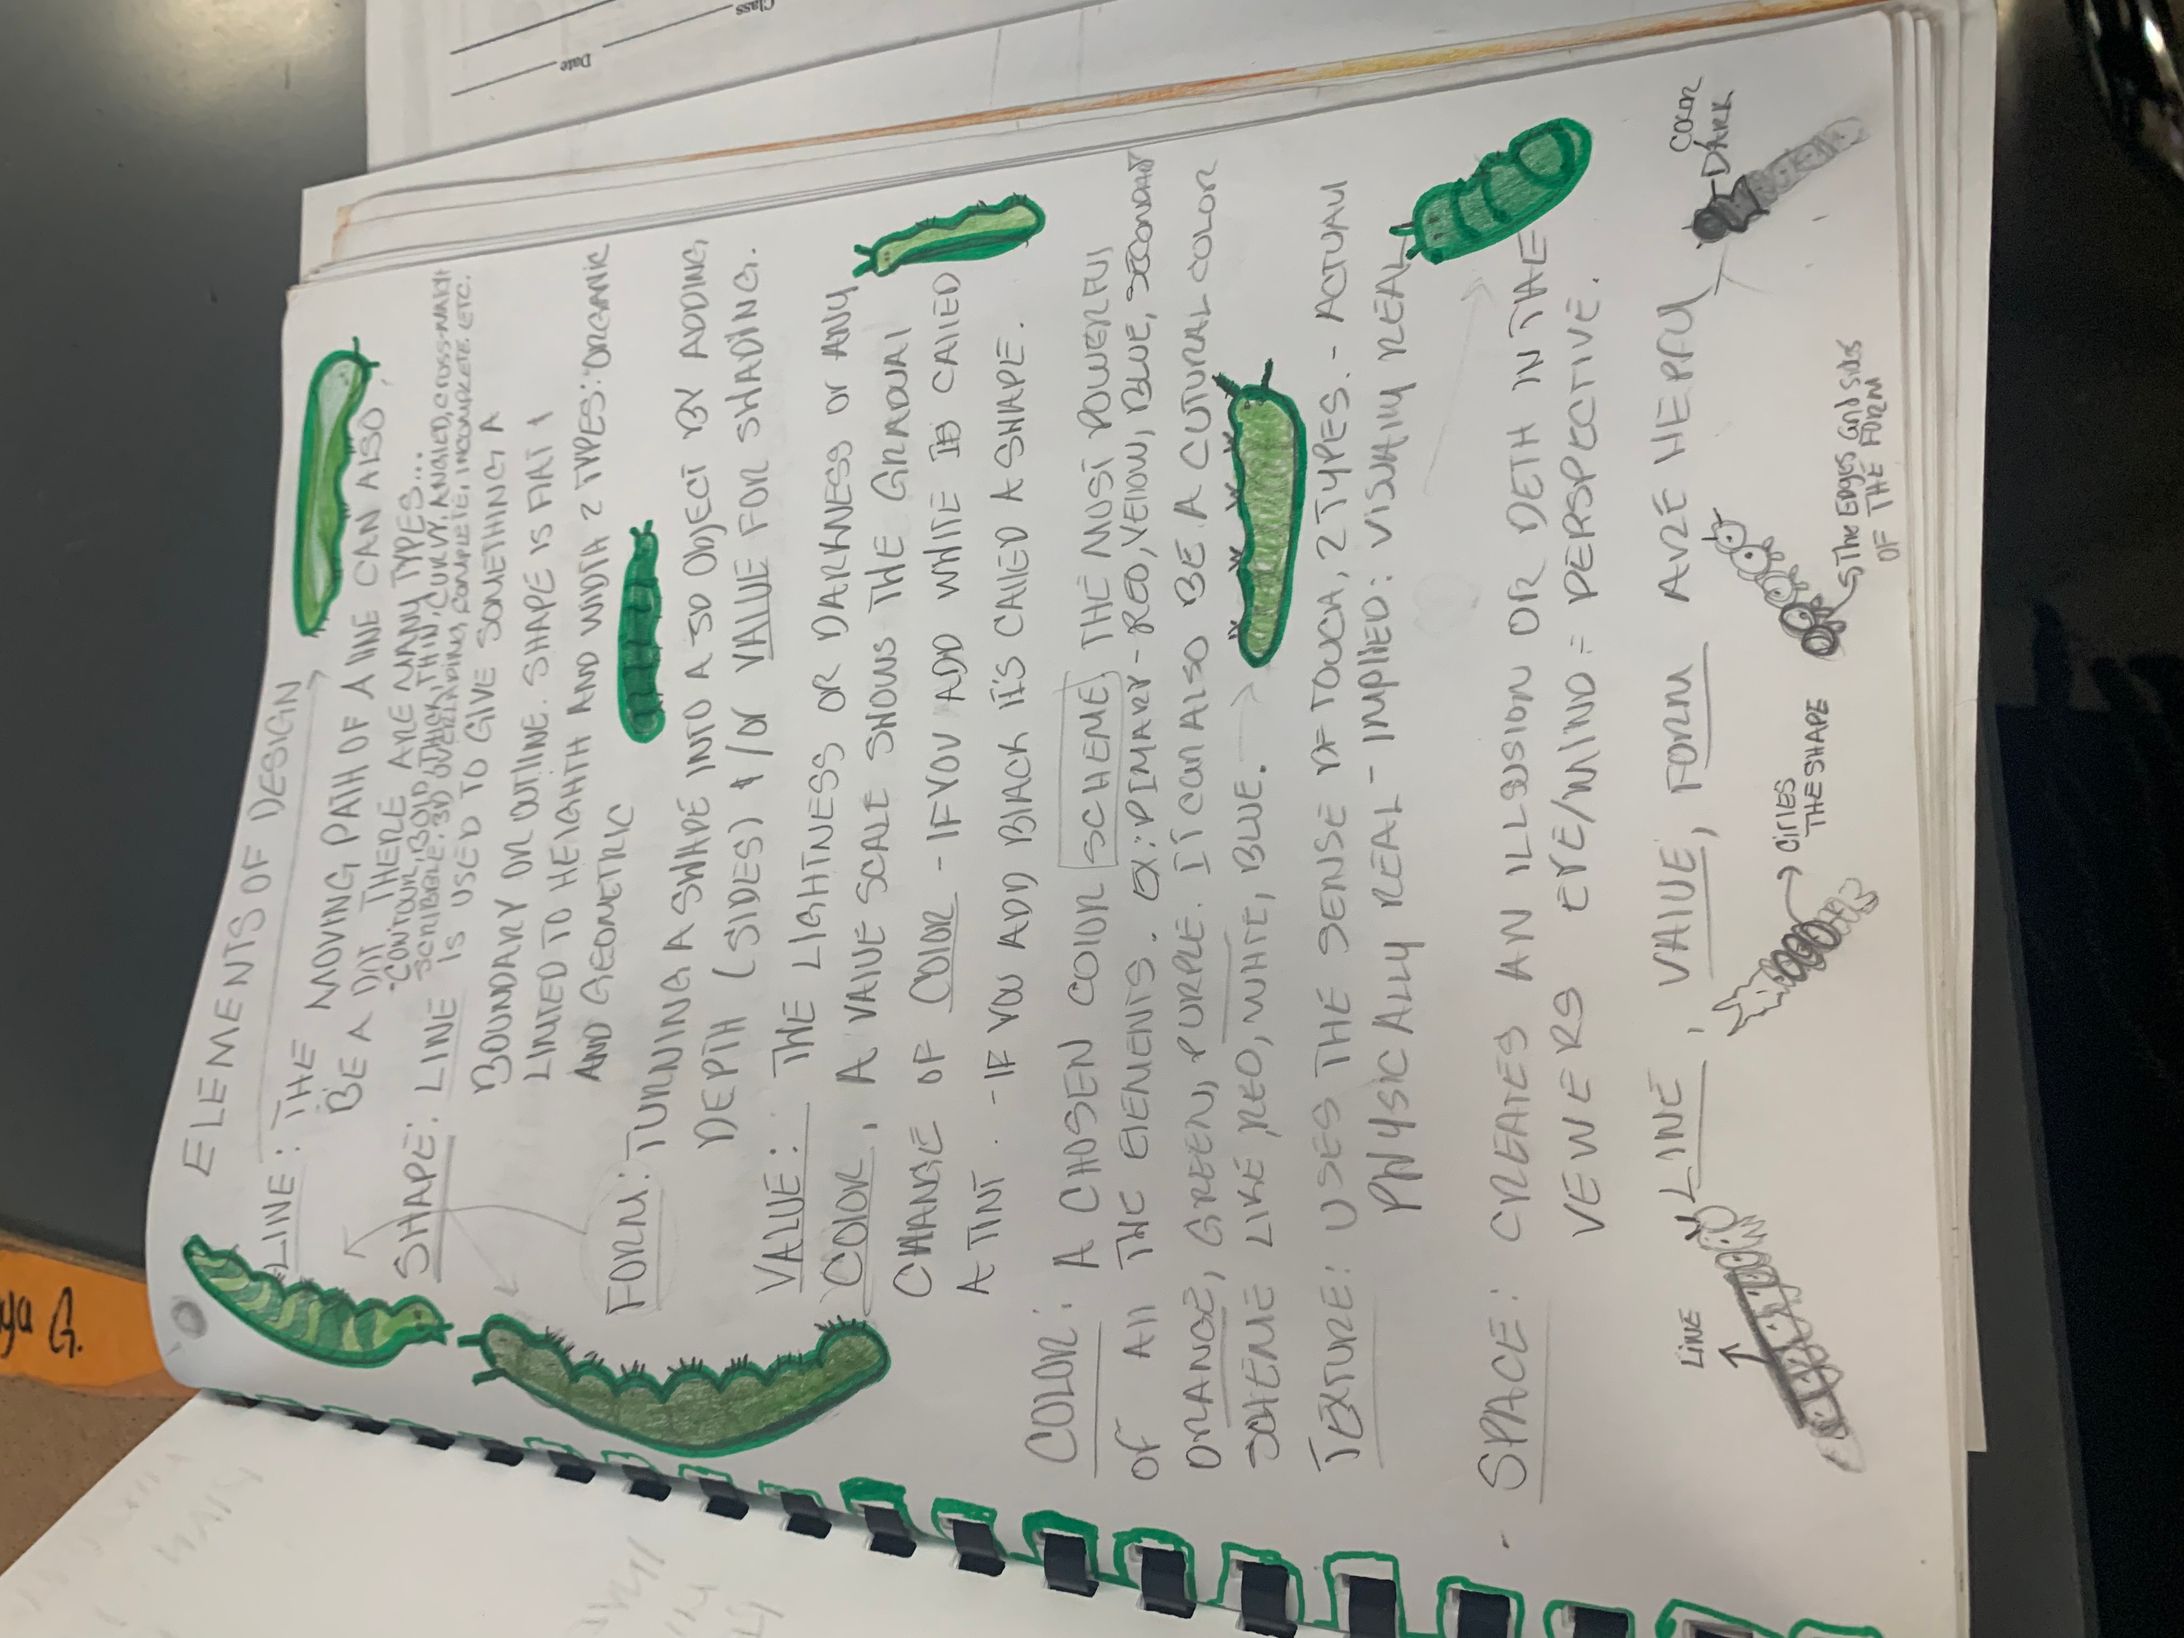 ELEMENTS OF DESIGN
LINE: THE MOVING PATH OF A LINE CAN ALSO
BE A DOT THERE ARE MANY TYPES...
-CONTOUR, BOLD, THICK, THIN, CURVY, ANGLED, CROSS-
SCRIBBLE, 3D OVERLAPING, COMPLETE, INCOMPLETE. ETC.
SHAPE: LINE IS USED TO GIVE SOMETHING A
BOUNDARY OR OUTLINE. SHAPE IS FLAT &
LIMITED TO HEIGHTH AND WIDTH 2 TYPES: ORGANIC
AND GEOMETRIC
FORM: TURNING A SHAPE INTO A 3D OBJECT BY ADDING
DEPTH (SIDES) & /OR VALUE FOR SHADING.
VALUE: THE LIGHTNESS OR DARKNESS OF ANY
COLOR, A VALUE SCALE SHOWS THE GRADUAL
CHANGE OF COLOR - IF YOU ADD WHITE IS CALLED
A TINT. - IF YOU ADD BLACK IT'S CALLED A SHAPE.
COLOR: A CHOSEN COLOR SCHEME, THE MOST POWERFUL
OF All THE ElEMENTS. EX: PIMARY - RED, YEllOW, BLUE, SECONDARY
ORANGE, GREEN, PURPLE. IT CAN ALSO BE A CUTURAL COLOR
SCHEME LIKE, RED, WHITE, BLUE.
TEXTURE: USES THE SENSE OF TOUCH, 2 TYPES. - ACTUAL
PHYSICALLY REAL - IMPLIED: VISUALLY REAL
- SPACE: CREATES AN ILLUSION OR DETH IN THE
VEWERS EYE/MIND = PERSPECTIVE.
LINE, VALUE, FORM ARE HEPFU
LINE
CIRLES
THE SHAPE
The Edges and sids
OF THE FORM
COLOR
-DARK
Class
Date
ya G.